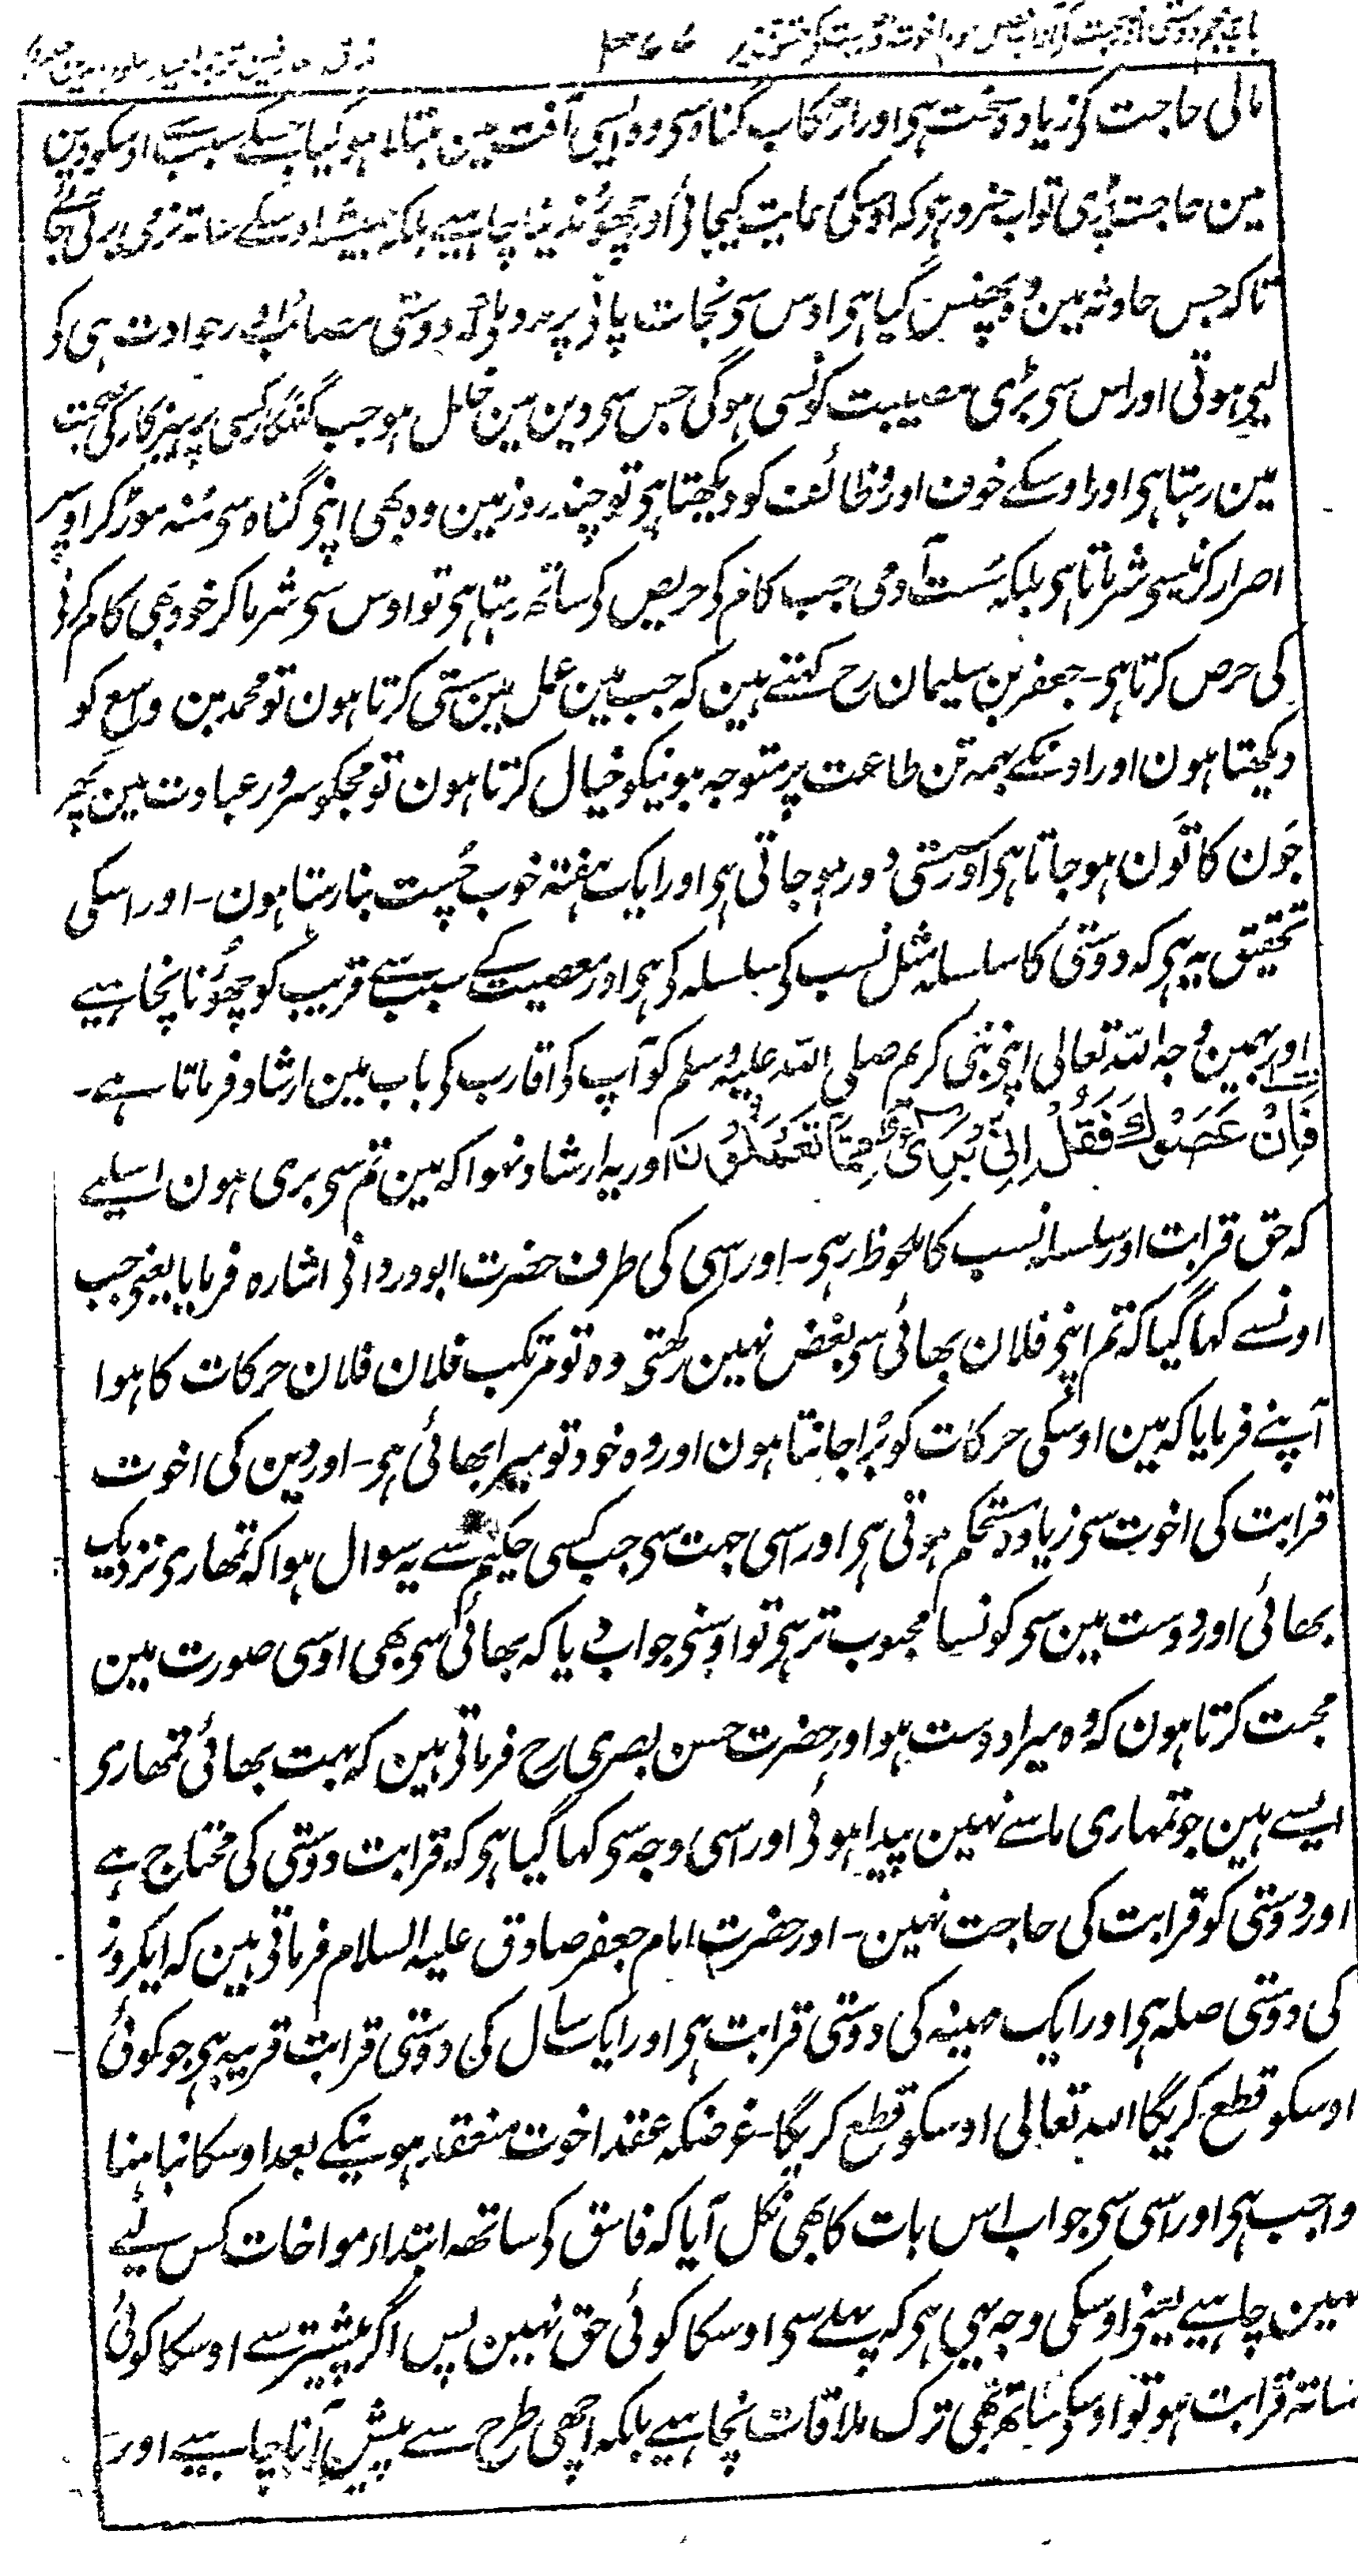 مالی حاجت کی زیادہ سخت ہی اور ارتکاب گناہ سی وہ ایسی آفت مین مبتلا ہو گیا جسکے سبب سے اوسکو دین
مین حاجت پڑی تو اب ضرور ہو کہ اوسکی رعایت کیجائی اور چھوڑ ندینا چاہیے بلکہ ہمیشہ اوسکے ساتھ نرمی برتی جائے
تاکہ جس حادثہ مین وہ پھنس گیا ہی اوس سی نجات پانی پر مدد ملی کہ دوستی مصائب اور حوادث ہی کی
لیی ہوتی اور اس سی بڑی مصیبت کونسی ہوگی جس سی دین مین خلل ہو جب گنہگار کسی پرہیزگار کی صحبت
مین رہتا ہی اور اوسکے خوف اور وظائف کو دیکھتا ہی تو چند روز مین وہ بھی اپنی گناہ سی منہ موڑ کر اوسپر
اصرار کرنیسی شرماتا ہی بلکہ سست آدمی جب کام کی حریص کی ساتھ رہتا ہی تو اوس سی شرما کر خود بھی کام کرنی
کی حرص کرتا ہی۔ جعفر بن سلیمان رح کہتے ہین کہ جب مین عمل مین سستی کرتا ہون تو محمد بن واسع کو
دیکھتا ہون اور اونکے ہمہ تن طاعت پر متوجہ ہونیکو خیال کرتا ہون تو مجکو سرور عبادت مین پھر
جون کا تون ہو جاتا ہی اور سستی دور ہو جاتی ہی اور ایک ہفتہ خوب چست بنا رہتا ہون۔ اور اسکی
تحقیق یہ ہی کہ دوستی کا سلسلہ مثل نسب کی سلسلہ کی ہی اور معصیت کے سبب سے قریب کو چھوڑنا نچاہیے
اور بہمین وجہ اللہ تعالی اپنی نبی کریم صلی اللہ علیہ وسلم کو آپ کی اقارب کی باب مین ارشاد فرماتا ہے۔
فَاِنْ عَصَوْكَ فَقُلْ اِنِّىْ بَرِىْءٌ مِّمَّا تَعْمَلُوْنَ اور یہ ارشاد نہوا کہ مین تم سی بری ہون اسلیے
کہ حق قرابت اور سلسلہ نسب کا ملحوظ رہی۔ اور اسی کی طرف حضرت ابو دردا نی اشارہ فرمایا یعنی جب
اونسے کہا گیا کہ تم اپنی فلان بھائی سی بغض نہین رکھتی وہ تو مرتکب فلان فلان حرکات کا ہوا
آپنے فرمایا کہ مین اوسکی حرکات کو برا جانتا ہون اور وہ خود تو میرا بھائی ہی۔ اور دین کی اخوت
قرابت کی اخوت سی زیادہ مستحکم ہوتی ہی اور اسی جہت سی جب کسی حکیم سے یہ سوال ہوا کہ تمھاری نزدیک
بھائی اور دوست مین سی کونسا محبوب تر ہی تو اوسنی جواب دیا کہ بھائی سی بھی اوسی صورت مین
محبت کرتا ہون کہ وہ میرا دوست ہو اور حضرت حسن بصری رح فرماتی ہین کہ بہت بھائی تمھاری
ایسے ہین جو تمہاری ما سے نہین پیدا ہوئی اور اسی وجہ سی کہا گیا ہی کہ قرابت دوستی کی محتاج ہے
اور دوستی کو قرابت کی حاجت نہین۔ اور حضرت امام جعفر صادق علیہ السلام فرماتی ہین کہ ایکروز
کی دوستی صلہ ہی اور ایک مہینہ کی دوستی قرابت ہی اور ایک سال کی دوستی قرابت قریبہ ہی جو کوئی
اوسکو قطع کریگا اللہ تعالی اوسکو قطع کریگا۔ غرضکہ عقد اخوت منعقد ہونیکے بعد اوسکا نباہنا
واجب ہی اور اسی سی جواب اس بات کا بھی نکل آیا کہ فاسق کی ساتھ ابتداء مواخات کس لیے
نہین چاہیے یعنی اوسکی وجہ یہی ہی کہ پہلے سی اوسکا کوئی حق نہین پس اگر پیشتر سے اوسکا کوئی
ساتھ قرابت ہو تو اوسکی ساتھ بھی ترک ملاقات نچاہیے بلکہ اچھی طرح سے پیش آنا چاہیے اور